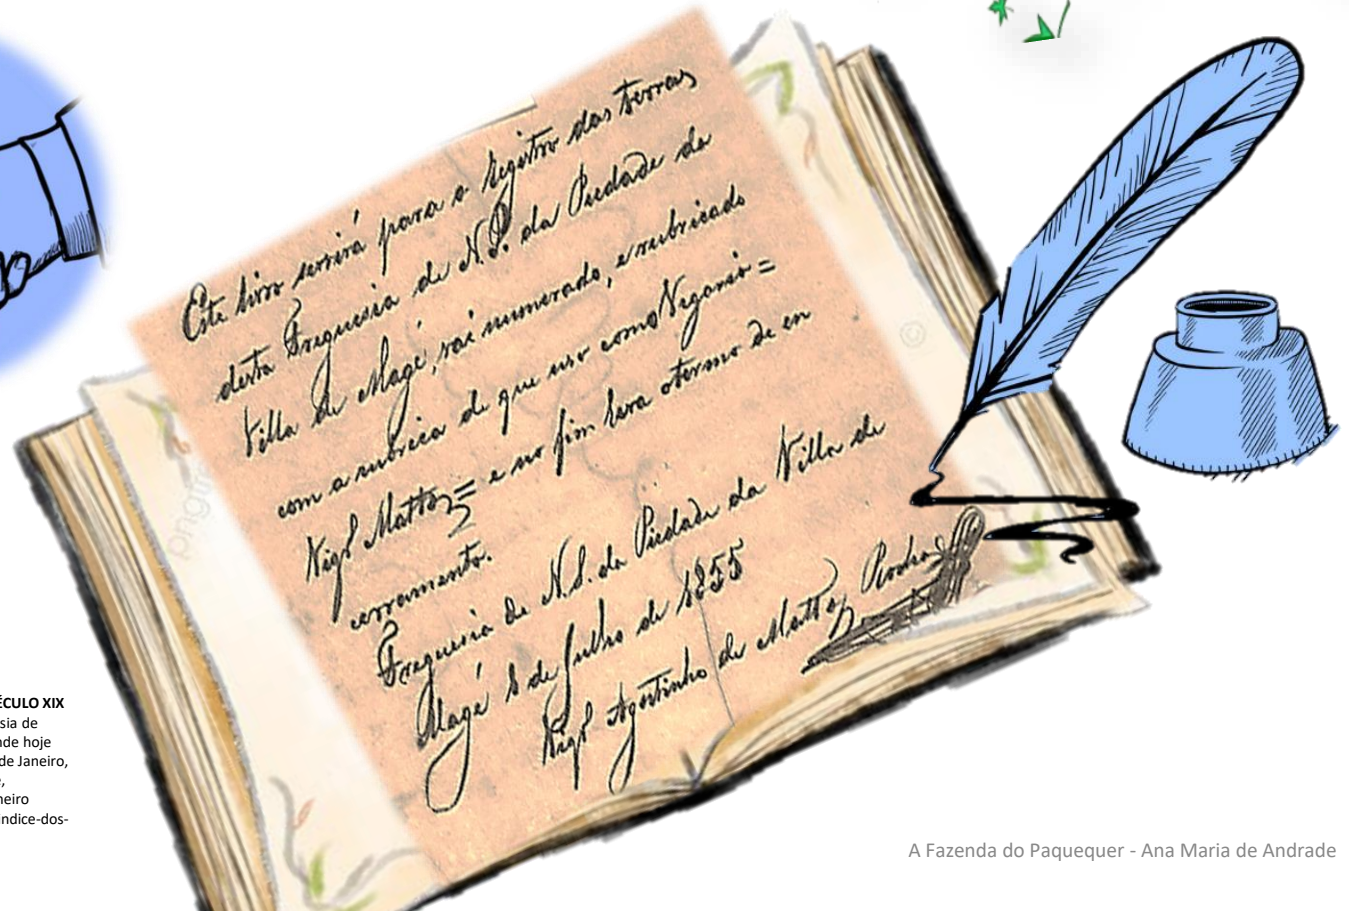 Este livro servirá para o registro das terras
desta Freguesia de N. S. da Piedade da
Villa de Magé, vai numerado, e rubricado
com a rubrica de que uso como Vigario =
Vigrº Mattos = e no fim leva o termo de en
cerramento.
Freguesia de N. S. da Piedade da Villa de
Magé 8 de Julho de 1855
Vigrº Agostinho de Mattos
ÉCULO XIX
sia de
nde hoje
de Janeiro,
neiro
ndice-dos-
A Fazenda do Paquequer - Ana Maria de Andrade